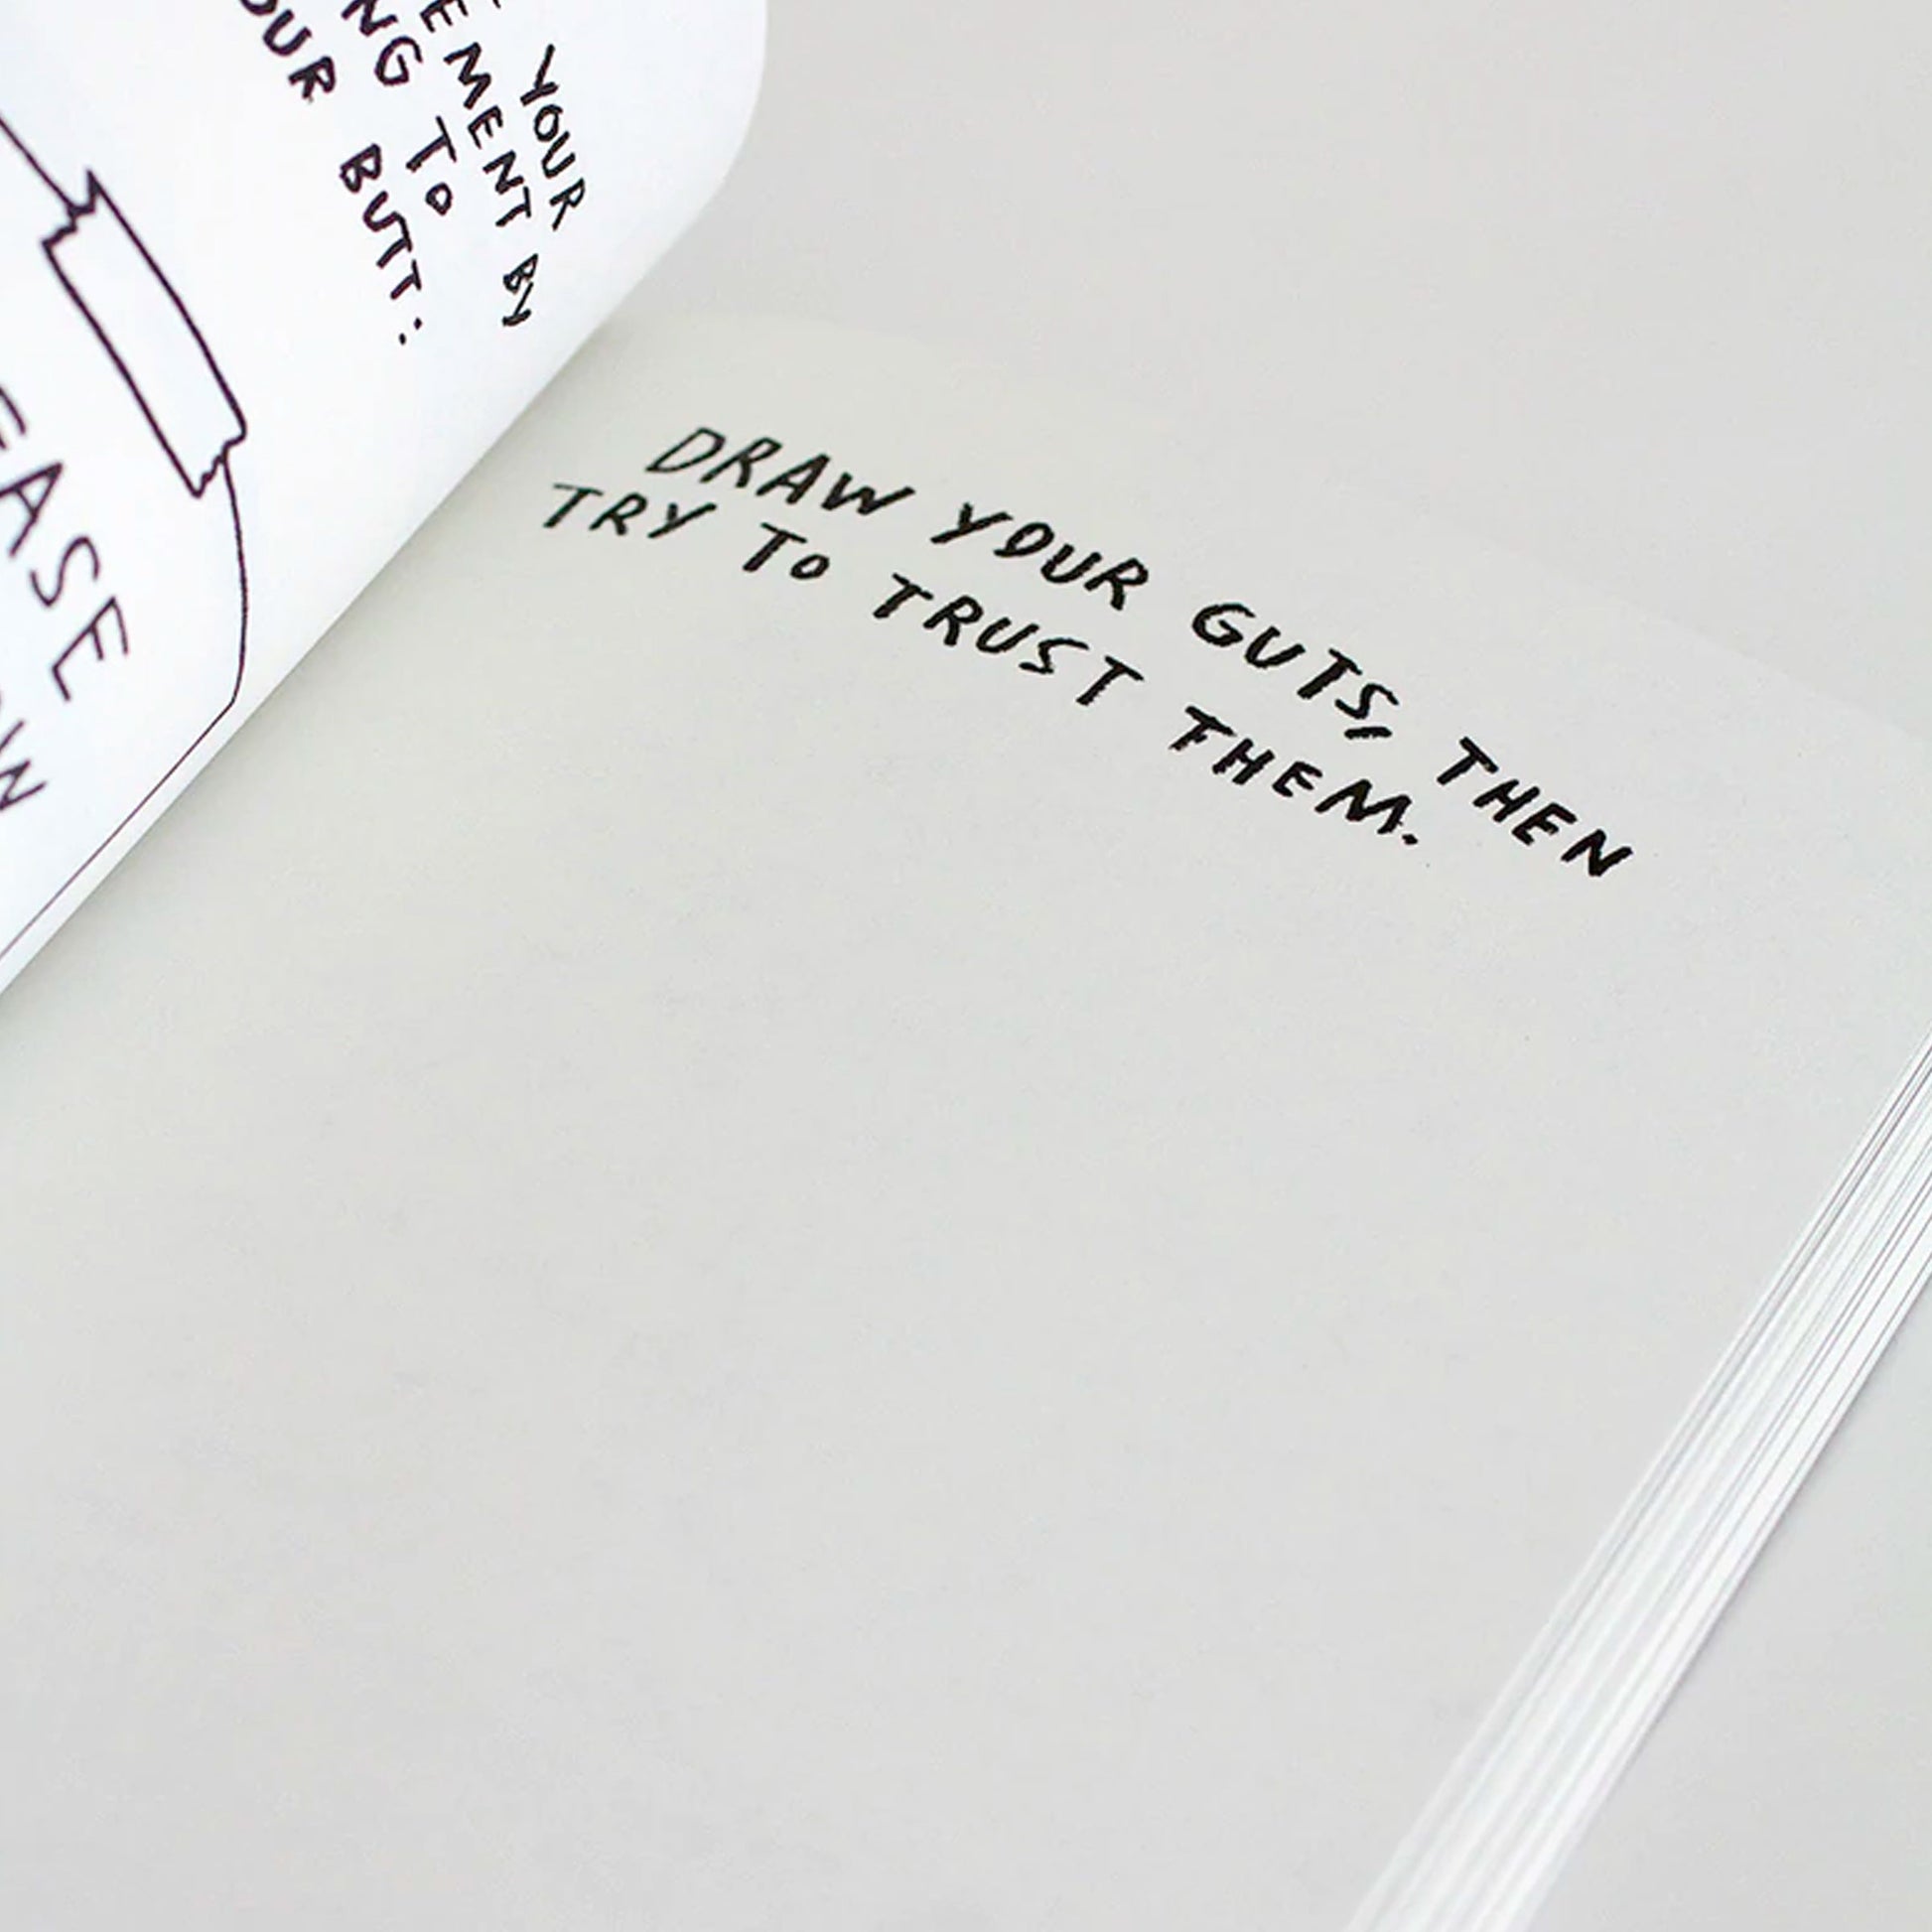 YOUR
EMENT BY
NG TO
OUR BUTT:
EASE
DRAW YOUR GUTS, THEN
TRY TO TRUST THEM.